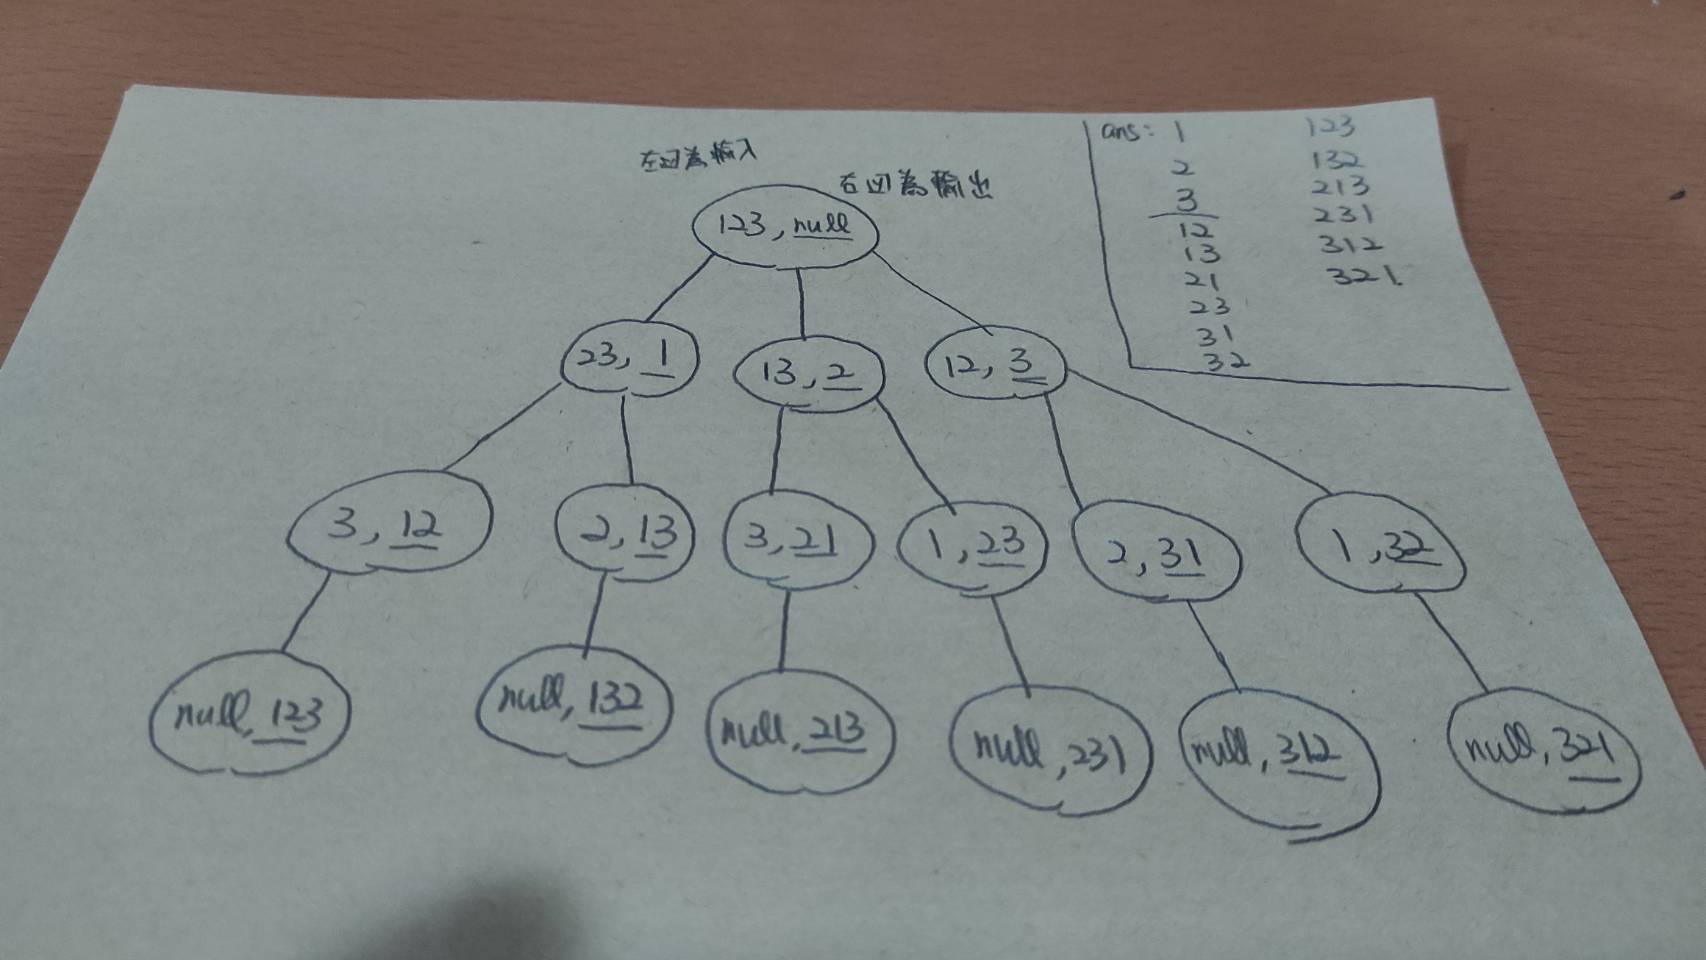 左边為輸入
右边為輸出
123, null
23, 1
13, 2
12, 3
3, 12
2, 13
3, 21
1, 23
2, 31
1, 32
null, 123
null, 132
null, 213
null, 231
null, 312
null, 321
ans: 1
2
3
12
13
21
23
31
32
123
132
213
231
312
321.